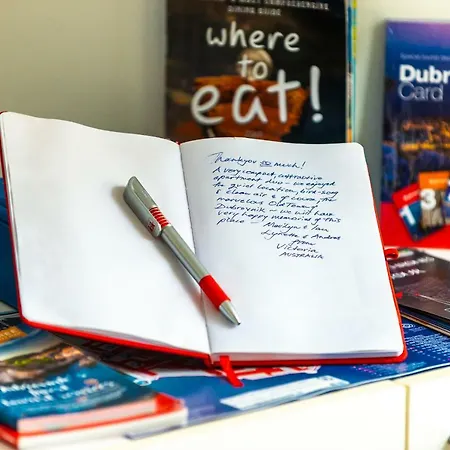 DINING GUIDE
where
to
eat!
Dubr
Card
1
3
Thankyou so much!
A very compact, attractive
apartment duo – we enjoyed
the quiet location, bird-song
& clean air & of course, the
marvelous Old Town of
Dubrovnik – we will have
very happy memories of this
place – Marilyn & Ian
Lynette & Andrew
from
Victoria
AUSTRALIA